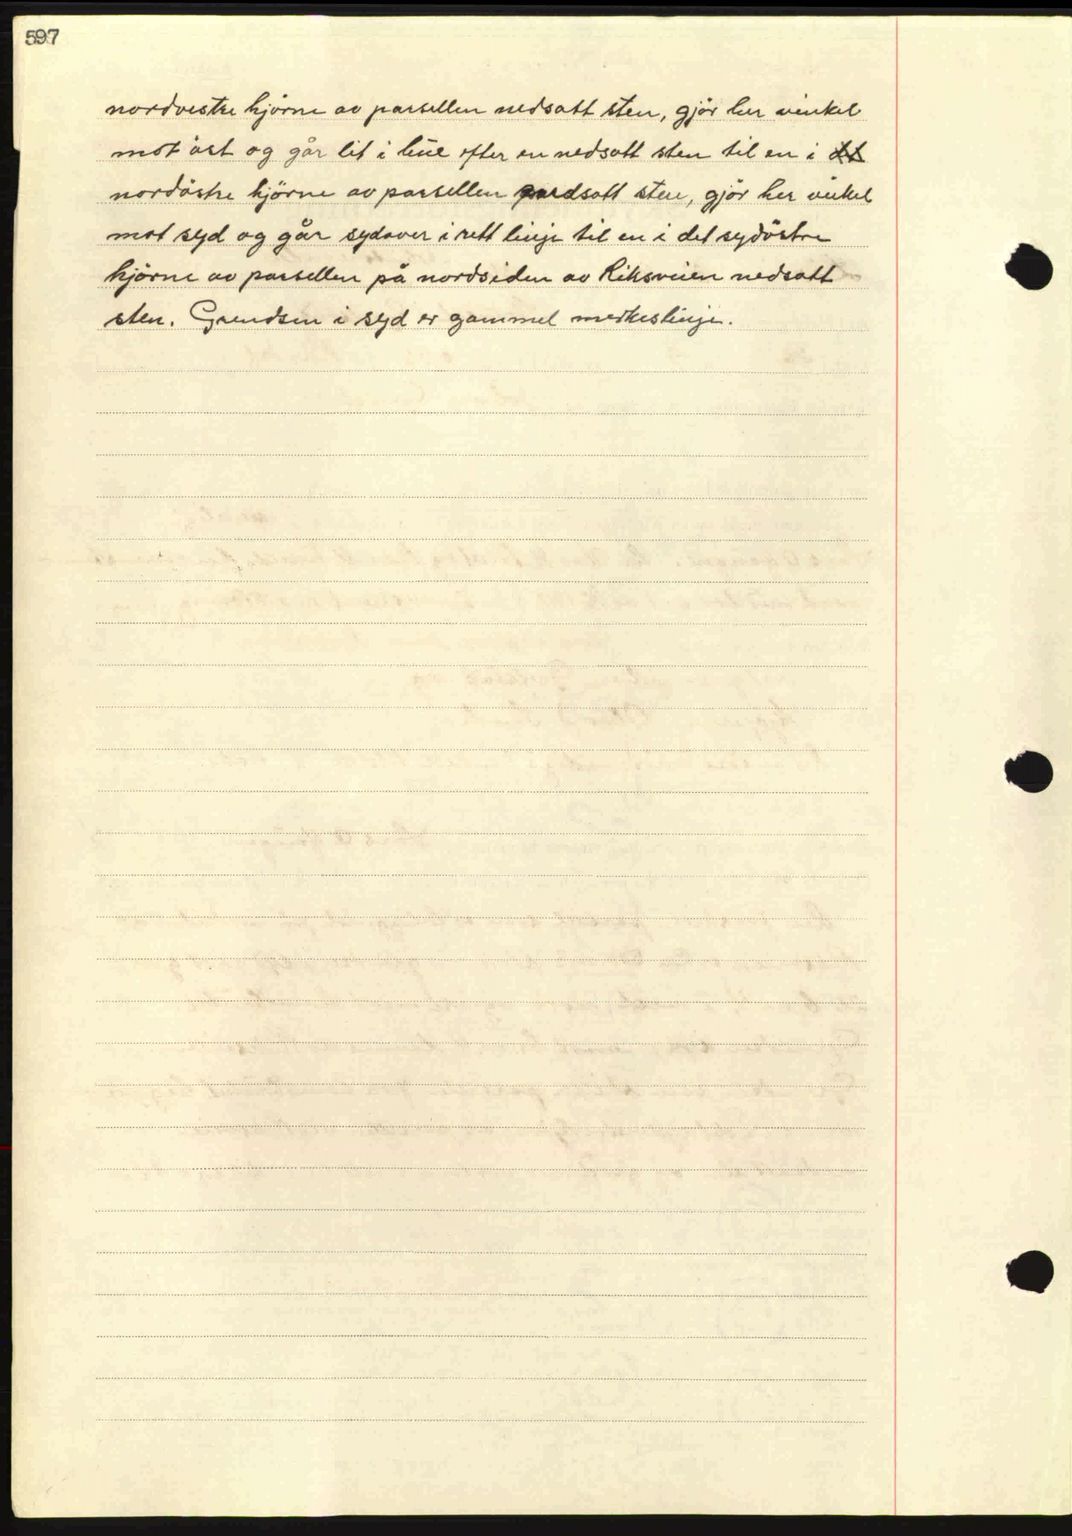 597
nordvestre hjörne av parsellen nedsatt sten, gjör her vinkel
mot öst og går litt i line efter en nedsatt sten til en i
nordöstre hjörne av parsellen nedsatt sten, gjör her vinkel
mot syd og går sydover i rett linje til en i det sydöstre
hjörne av parsellen på nordsiden av Riksveien nedsatt
sten. Grendsen i syd er gammel merkeslinje.